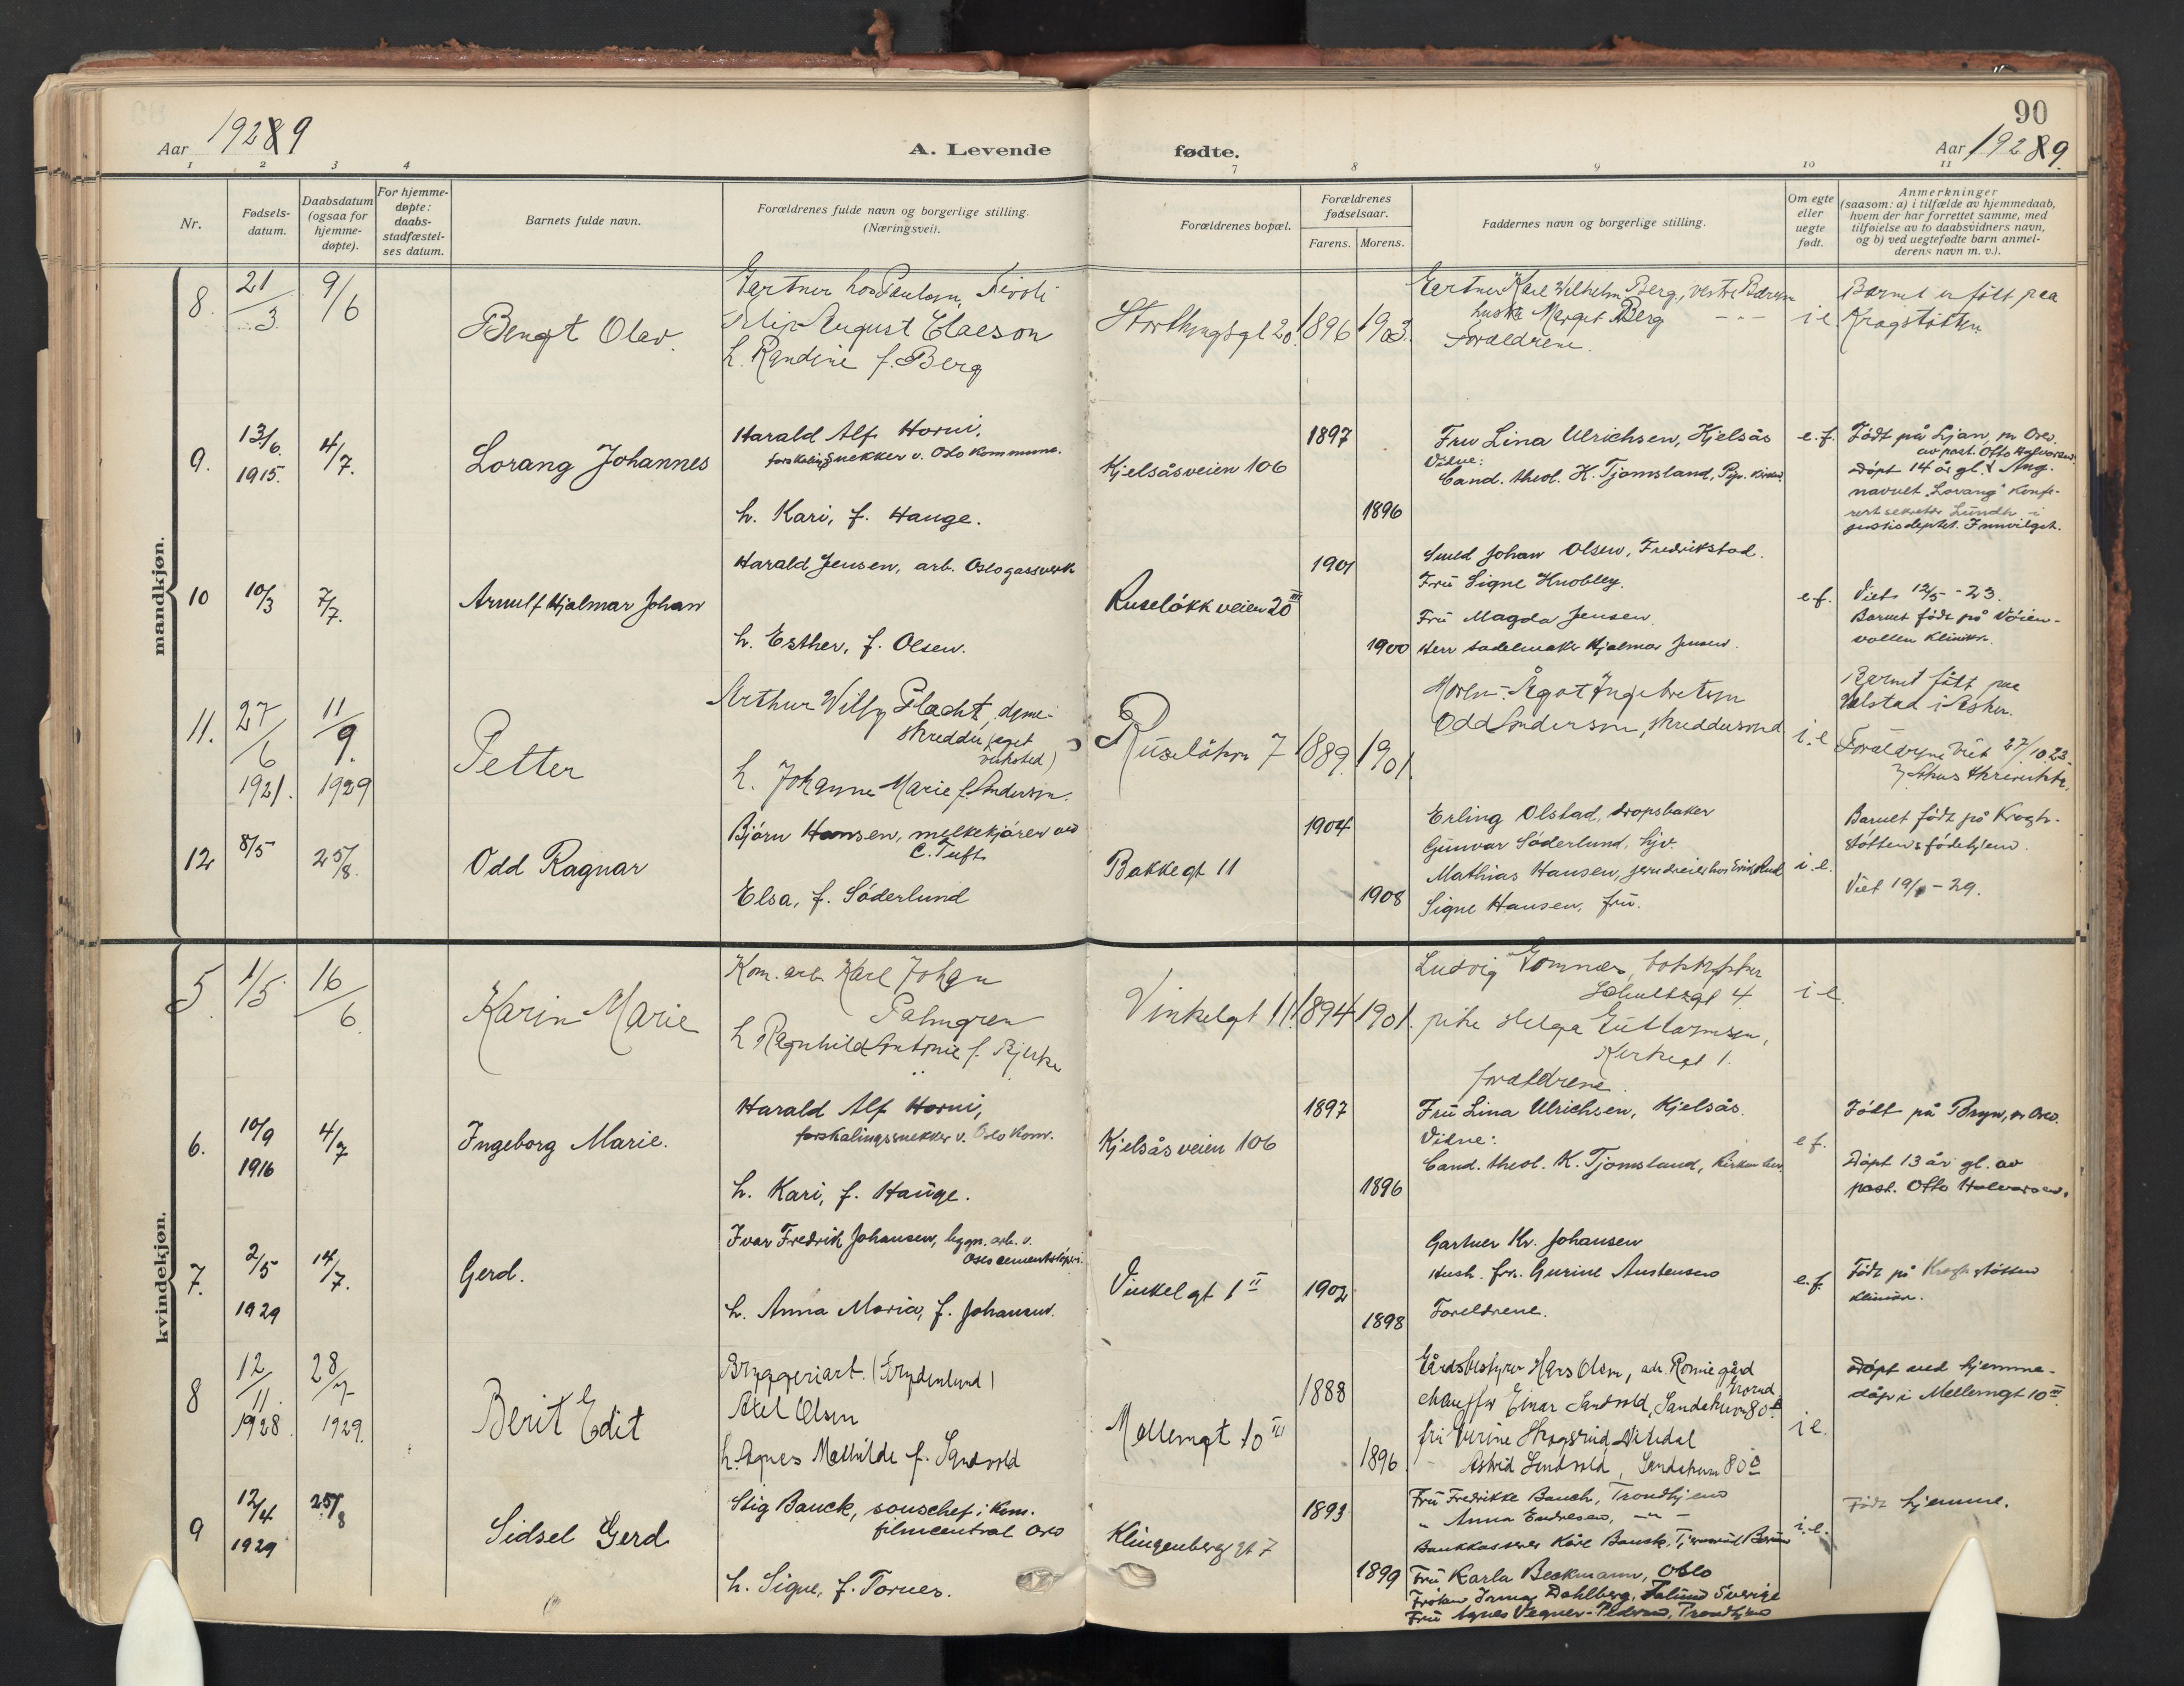 Aar 1928 9
A. Levende
fødte.
90
Aar 1928 9.
1 2 3 4
7 8 9 10 11
Nr.
Fødsels-
datum.
Daabsdatum
(ogsaa for
hjemme-
døpte).
For hjemme-
døpte:
daabs-
stadfæstel-
ses datum.
Barnets fulde navn.
Forældrenes fulde navn og borgerlige stilling.
(Næringsvei).
Forældrenes bopæl.
Forældrenes
fødselsaar.
Farens. Morens.
Faddernes navn og borgerlige stilling.
Om egte
eller
uegte
født.
Anmerkninger
(saasom: a) i tilfælde av hjemmedaab,
hvem der har forrettet samme, med
tilføielse av to daabsvidners navn,
og b) ved uegtefødte barn anmel-
derens navn m. v.).
mandkjøn.
8. 21/3. 9/6
Bengt Olav.
Gartner hos Paulsen, Tivoli
Filip August Claeson
h. Randine f. Berg
Storthingsgt 20. 1896 1903.
Gartner Karl Wilhelm Berg, vestre Bærum
Margit Berg - " -
Forældrene.
i e
Barnet er født paa
Kragstøtten
9. 13/6. 1915. 4/7.
Lorang Johannes
Harald Alf Horni,
forskalingsnekker v. Oslo Kommune.
h. Kari, f. Hauge.
Kjelsåsveien 106
1897
1896
Fru Lina Ulrichsen, Kjelsås
Vidne:
Cand. theol. K. Tjomsland,
e. f.
Født på Ljan, pr Oslo.
av past. Otto Halvorsen.
Døpt 14 år gl. Ang.
navnet "Lorang" konfe-
rert sekretær Lundh i
justisdeptet. Innvilget.
10 10/3 7/7.
Arnulf Hjalmar Johan
Harald Jensen, arb. Oslo gassverk
h. Esther, f. Olsen.
Ruseløkkveien 20 III
1901
1900
Smed Johan Olsen, Fredrikstad.
Fru Signe Knobley.
Fru Magda Jensen.
Herr sadelmaker Hjalmar Jensen.
e. f.
Viet 12/5 - 23.
Barnet født på Vøien-
vollen klinikk.
11. 27/6 1921. 11/9. 1929
Petter
Arthur Willy Placht, dame-
skredder (eget
verksted)
h. Johanne Marie f. Andersen.
Ruseløkvn 7 1889. 1901.
Moren - Ågot Ingebretsen
Odd Andersen, skreddersvend
i. e
Barnet født paa
Valstad i Asker.
Forældrene viet 27/10 23
12 8/5 25/8.
Odd Ragnar
Bjørn Hansen, melkekjører ved
C. Tuft
Elsa, f. Søderlund
Bakkegt 11
1904
1908
Erling Olstad, dropsbaker
Gunvor Søderlund, hjv.
Mathias Hansen, jerndreier hos Erik Ruud
Signe Hansen, fru.
i. e.
Barnet født på Krogh-
støtten s fødehjem.
Viet 19/ - 29.
kvindekjøn.
5. 1/5. 16/6
Karin Marie
Kom. arb. Karl Johan
Palmgren
h Ragnhild Antonie f. Bjerke
Vinkelgt 11. 1894 1901.
Ludvig Gomnæs,
Schultzgt 4
pike Helga Guttormsen,
Kirkegt 1.
forældrene.
i e.
6. 10/9 1916 4/7
Ingeborg Marie.
Harald Alf Horni,
forskalingssnekker v. Oslo Kom.
h. Kari, f. Hauge.
Kjelsåsveien 106
1897
1896
Fru Lina Ulrichsen, Kjelsås.
Vidne:
Cand. theol. K. Tjomsland,
e f.
Født på Bryn, pr Oslo.
Døpt 13 år gl. av
past. Otto Halvorsen.
7. 2/5 1929 14/7.
Gerd.
Ivar Fredrik Johansen, bygn. arb. v.
Oslo cementstøperi.
h. Anna Maria, f. Johansen.
Vinkelgt 1 II
1902
1898
Gartner Kr. Johansen
Hush. frk. Gurine Austensen
Foreldrene.
e. f.
Født på Kroghstøtten
klinikk.
8 12/11 1928. 28/7 1929.
Berit Edit
Bryggeriarb. (Frydenlund)
Axel Olsen
h. Agnes Mathilde f. Sandvold
Mellemgt 10 III
1888
1896
Gårdsbestyrer Hans Olsen, adr. Romegård
Grorud
chauffør Einar Sandvold, Sandakervn 80 B
fru Nittedal
Astrid Sandvold, Sandakervn 80 B
i e.
Døpt ved hjemme-
dåp i Mellemgt 10 III
9 12/4 1929 25/8
Sidsel Gerd
Stig Bauck, souschef i Kom.
filmcentral Oslo
h. Signe, f. Tornes.
Klingenberggt 7
1893
1899
Fru Fredrikke Bauck, Trondhjem
" Anna Endresen, - " -
Bankkasserer Kåre Bauck,
Fru Karla Beckmann, Oslo
Frøken Irma Dahlberg, Falun Sverige
Fru Agnes Vegner-Pedersen, Trondhjem
i. e.
Født hjemme.